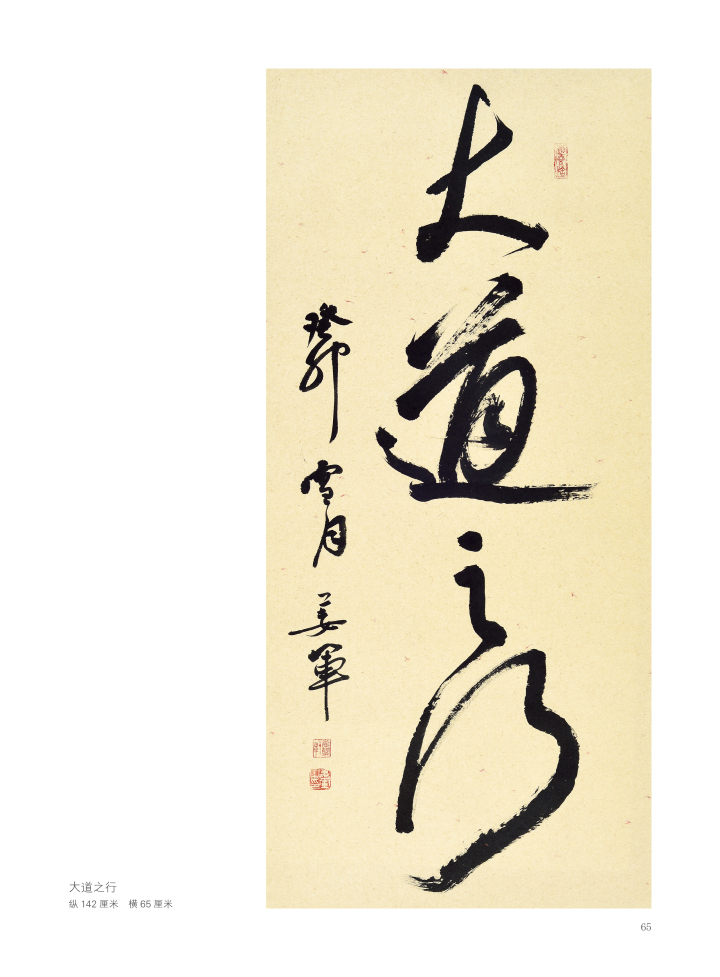 大道之行
癸卯雪月姜军
大道之行
纵 142 厘米 横 65 厘米
65